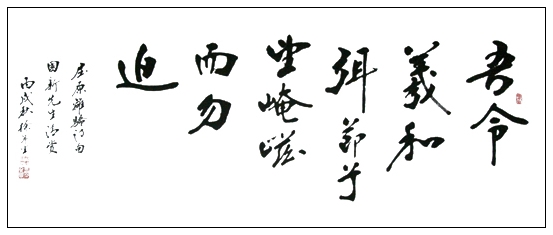 吾令
羲和
弭節兮
望崦嵫
而勿
迫
屈原離騷詩句
國新先生清賞
丙戌秋徐